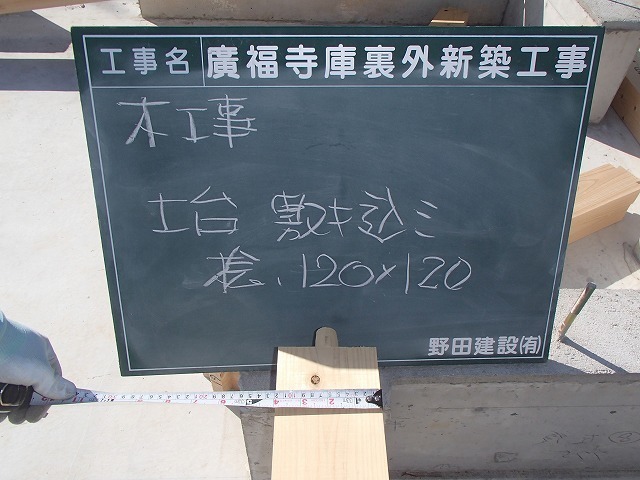 工事名 廣福寺庫裏外新築工事
木工事
土台 敷キ込ミ
桧、120×120
野田建設㈲